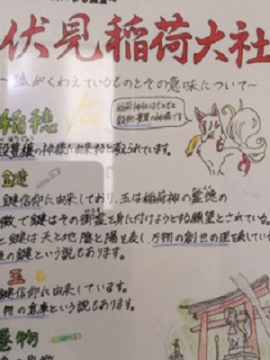 伏見稲荷大社
〜狐がくわえているものとその意味について〜
稲穂
稲荷神社はもともと
の神様です
の神様に由来すると考えられています。
鍵
鍵信仰に由来しており、玉は稲荷神の霊徳の
徴で鍵はその御霊を身に付けようとする願望とされている。
と鍵は天と地、陰と陽を表し、万物の創世の理を表してい
の鍵という説もあります。
玉
鍵信仰に由来しています。
物の倉庫という説もあります。
巻物